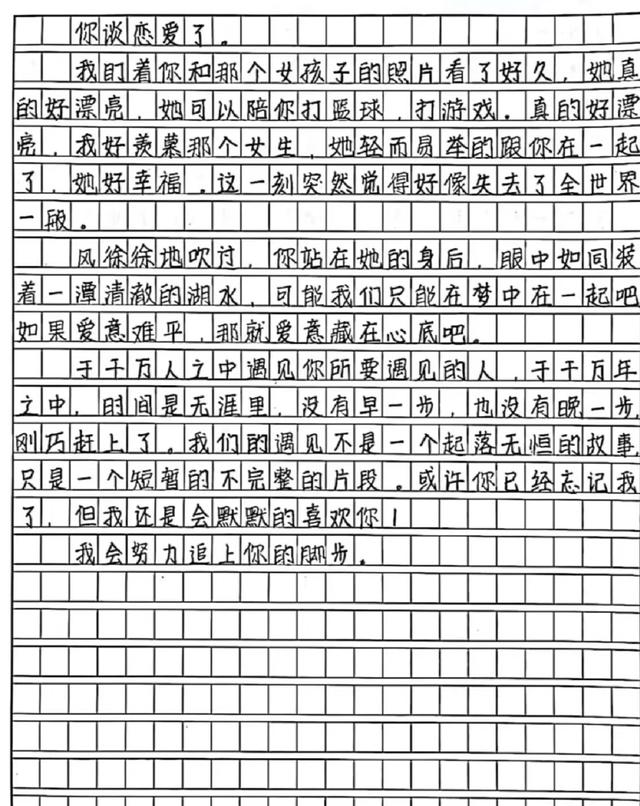 你谈恋爱了。
我盯着你和那个女孩子的照片看了好久，她真
的好漂亮，她可以陪你打篮球，打游戏。真的好漂
亮，我好羡慕那个女生，她轻而易举的跟你在一起
了，她好幸福。这一刻突然觉得好像失去了全世界
一般。
风徐徐地吹过，你站在她的身后，眼中如同装
着一潭清澈的湖水，可能我们只能在梦中在一起吧
如果爱意难平，那就爱意藏在心底吧。
于千万人之中遇见你所要遇见的人，于千万年
之中，时间是无涯里，没有早一步，也没有晚一步
刚巧赶上了。我们的遇见不是一个起落无恒的故事，
只是一个短暂的不完整的片段。或许你已经忘记我
了，但我还是会默默的喜欢你！
我会努力追上你的脚步。